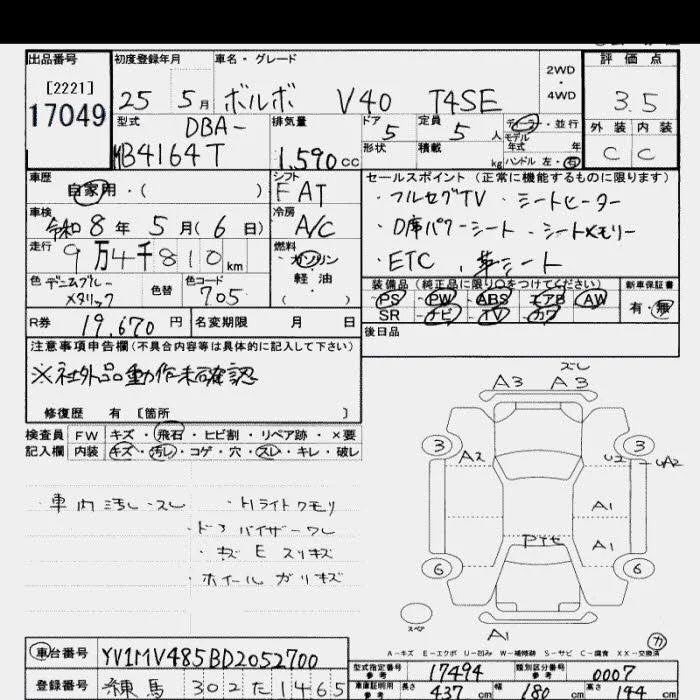 出品番号
[2221]
17049
初度登録年月
25 5月
車名・グレード
ボルボ V40 T4SE
2WD
・
4WD
評価点
3.5
外装 内装
C C
型式
DBA-
MB4164T
排気量
1.590 cc
ドア
5
定員
5 人
ディーラー・並行
モデル
年式 年
形状
積載 kg
ハンドル 左・右
車歴
自家用・( )
シフト
FAT
車検
令和8年5月(6日)
冷房
A/C
走行
9万4千810 km
燃料
ガソリン
軽油
( )
色 デニムブルー
メタリック
色替
色コード
705
R券 19,670 円
名変期限 月 日
セールスポイント (正常に機能するものに限ります)
・フルセグTV ・シートヒーター
・D席パワーシート ・シートメモリー
・ETC 、革シート
装備品 (純正品に限り○をつけてください)
PS PW ABS エアB AW
SR ナビ TV カワ
新車保証書
有・無
後日品
注意事項申告欄(不具合内容等は具体的に記入して下さい)
※社外品動作未確認
修復歴 有 [箇所 ]
検査員
記入欄
FW キズ・飛石・ヒビ割・リペア跡・×要
内装 キズ・汚レ・コゲ・穴・スレ・キレ・破レ
・車内汚レ・スレ
・Hライトクモリ
・ドアバイザーワレ
・キズ E スリキズ
・ホイールガリキズ
ズレ
A3 A3
3 3
A2
U2
A1
A1
6 6
スペア
A1
A-キズ E-エクボ U-凹み W-補修跡 S-サビ C-腐食 XX-交換済
車台番号 YV1MV485BD2052700
登録番号 練馬 302 た 1465
型式指定番号
参考
17494
類別区分番号
参考
0007
車庫証明用
参考
長さ 437 cm 幅 180 cm 高さ 144 cm